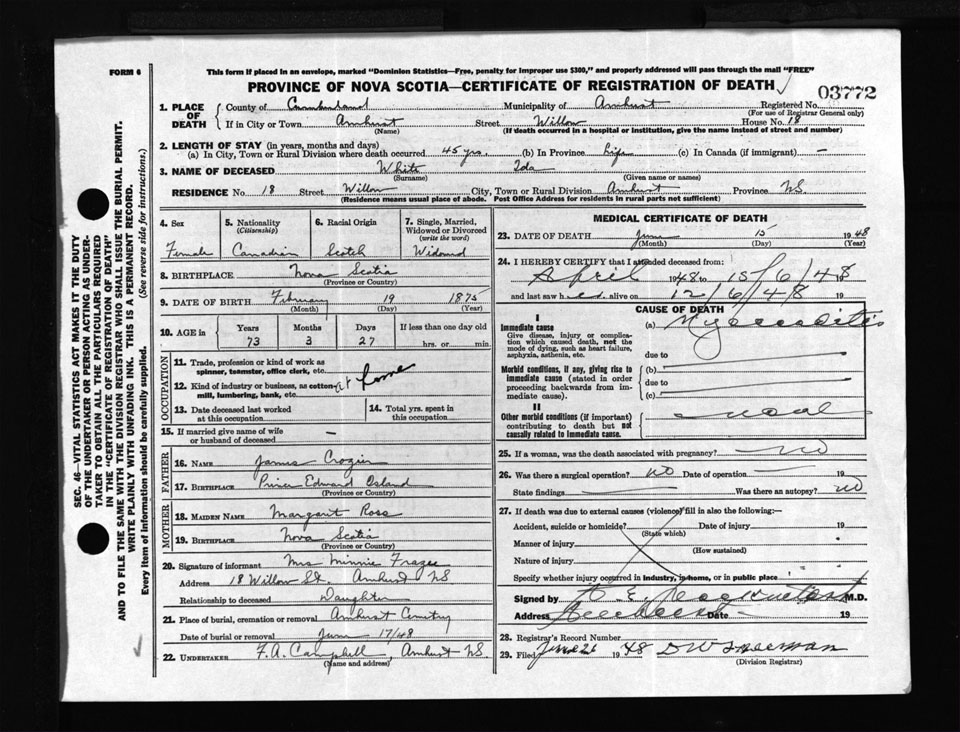 FORM 6
This form if placed in an envelope, marked "Dominion Statistics—Free, penalty for improper use $300," and properly addressed will pass through the mail "FREE"
PROVINCE OF NOVA SCOTIA—CERTIFICATE OF REGISTRATION OF DEATH
03772
1. PLACE OF DEATH County of Cumberland Municipality of Amherst Registered No.
(For use of Registrar General only)
If in City or Town Amherst Street Willow House No. 18
(Name) (If death occurred in a hospital or institution, give the name instead of street and number)
2. LENGTH OF STAY (in years, months and days)
(a) In City, Town or Rural Division where death occurred 45 yrs. (b) In Province Life (c) In Canada (if immigrant) —
3. NAME OF DECEASED White Ida
(Surname) (Given name or names)
RESIDENCE No. 18 Street Willow City, Town or Rural Division Amherst Province NS
(Residence means usual place of abode. Post Office Address for residents in rural parts not sufficient)
4. Sex Female
5. Nationality (Citizenship) Canadian
6. Racial Origin Scotch
7. Single, Married, Widowed or Divorced (write the word) Widowed
8. BIRTHPLACE Nova Scotia
(Province or Country)
9. DATE OF BIRTH February 19 1875
(Month) (Day) (Year)
10. AGE in Years Months Days If less than one day old
73 3 27 hrs. or min.
OCCUPATION
11. Trade, profession or kind of work as spinner, teamster, office clerk, etc.
12. Kind of industry or business, as cotton-mill, lumbering, bank, etc. At Home
13. Date deceased last worked at this occupation
14. Total yrs. spent in this occupation
15. If married give name of wife or husband of deceased —
FATHER
16. NAME James Crozier
17. BIRTHPLACE Prince Edward Island
(Province or Country)
MOTHER
18. MAIDEN NAME Margaret Ross
19. BIRTHPLACE Nova Scotia
(Province or Country)
20. Signature of informant Mrs Minnie Frazee
Address 18 Willow St. Amherst NS
Relationship to deceased Daughter
21. Place of burial, cremation or removal Amherst Cemetery
Date of burial or removal June 17/48
22. UNDERTAKER F.A. Campbell, Amherst NS.
(Name and address)
MEDICAL CERTIFICATE OF DEATH
23. DATE OF DEATH June 15 1948
(Month) (Day) (Year)
24. I HEREBY CERTIFY that I attended deceased from:
April 1948 to 15/6/48
and last saw h er alive on 12/6/48 19
CAUSE OF DEATH
I
Immediate cause (a) Myocarditis
Give disease, injury or complication which caused death, not the mode of dying, such as heart failure, asphyxia, asthenia, etc.
due to
Morbid conditions, if any, giving rise to immediate cause (stated in order proceeding backwards from immediate cause).
(b)
due to
(c)
II
Other morbid conditions (if important) contributing to death but not causally related to immediate cause.
25. If a woman, was the death associated with pregnancy? NO
26. Was there a surgical operation? NO Date of operation 19
State findings Was there an autopsy? NO
27. If death was due to external causes (violence) fill in also the following:—
Accident, suicide or homicide? Date of injury 19
(State which)
Manner of injury
(How sustained)
Nature of injury
Specify whether injury occurred in industry, in home, or in public place
Signed by M.D.
Address Date 19
28. Registrar's Record Number
29. Filed June 26 1948
(Division Registrar)
SEC. 46—VITAL STATISTICS ACT MAKES IT THE DUTY
OF THE UNDERTAKER OR PERSON ACTING AS UNDER-
TAKER TO OBTAIN ALL THE PARTICULARS REQUIRED
IN THE "CERTIFICATE OF REGISTRATION OF DEATH"
AND TO FILE THE SAME WITH THE DIVISION REGISTRAR WHO SHALL ISSUE THE BURIAL PERMIT.
WRITE PLAINLY WITH UNFADING INK. THIS IS A PERMANENT RECORD.
Every item of information should be carefully supplied. (See reverse side for instructions.)